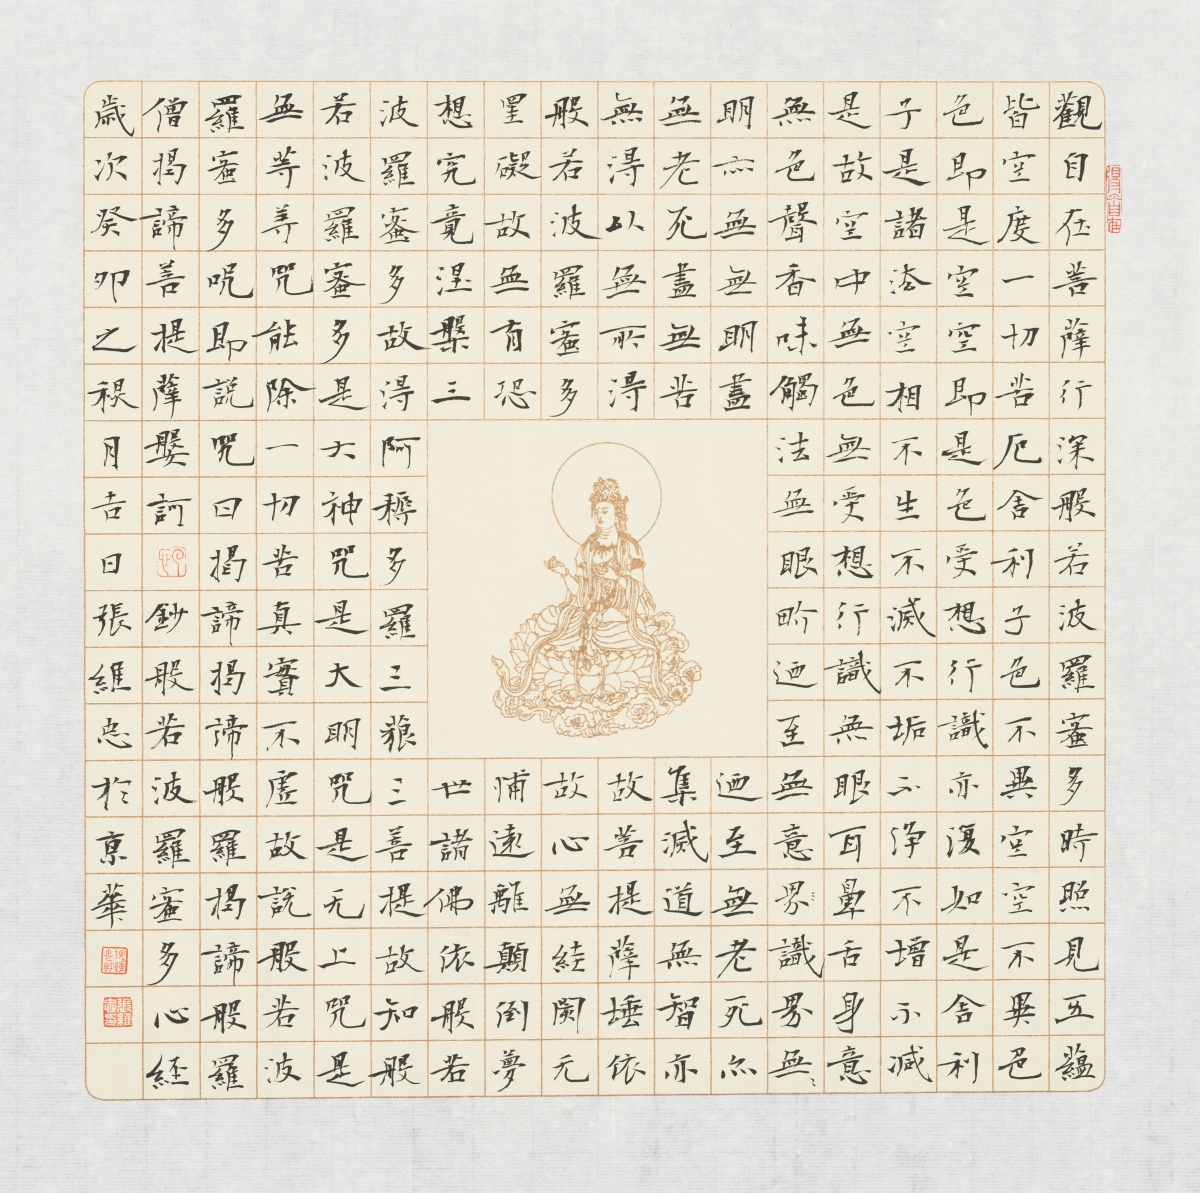 得自在
觀自在菩薩行深般若波羅蜜多時照見五蘊
皆空度一切苦厄舍利子色不異空空不異色
色即是空空即是色受想行識亦復如是舍利
子是諸法空相不生不滅不垢不淨不增不減
是故空中無色無受想行識無眼耳鼻舌身意
無色聲香味觸法無眼畍迺至無意界識界無
明亦無無明盡迺至無老死亦
無老死盡無苦集滅道無智亦
無得以無所得故菩提薩埵依
般若波羅蜜多故心無絓閡无
罣礙故無有恐怖遠離顛倒夢
想究竟涅槃三世諸佛依般若
波羅蜜多故得阿耨多羅三藐三菩提故知般
若波羅蜜多是大神咒是大明咒是无上咒是
無等等咒能除一切苦真實不虛故說般若波
羅蜜多咒即說咒曰揭諦揭諦般羅揭諦般羅
僧揭諦菩提薩婆訶鈔般若波羅蜜多心經
歲次癸卯之禊月吉日張維忠於京華